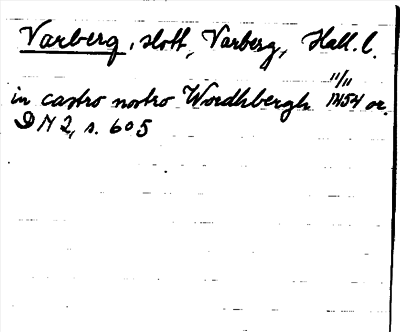 Varberg, slott, Varberg, Hall. l.
11/11
in castro nostro Wordhbergh 1454 or.
DN 2, s. 605